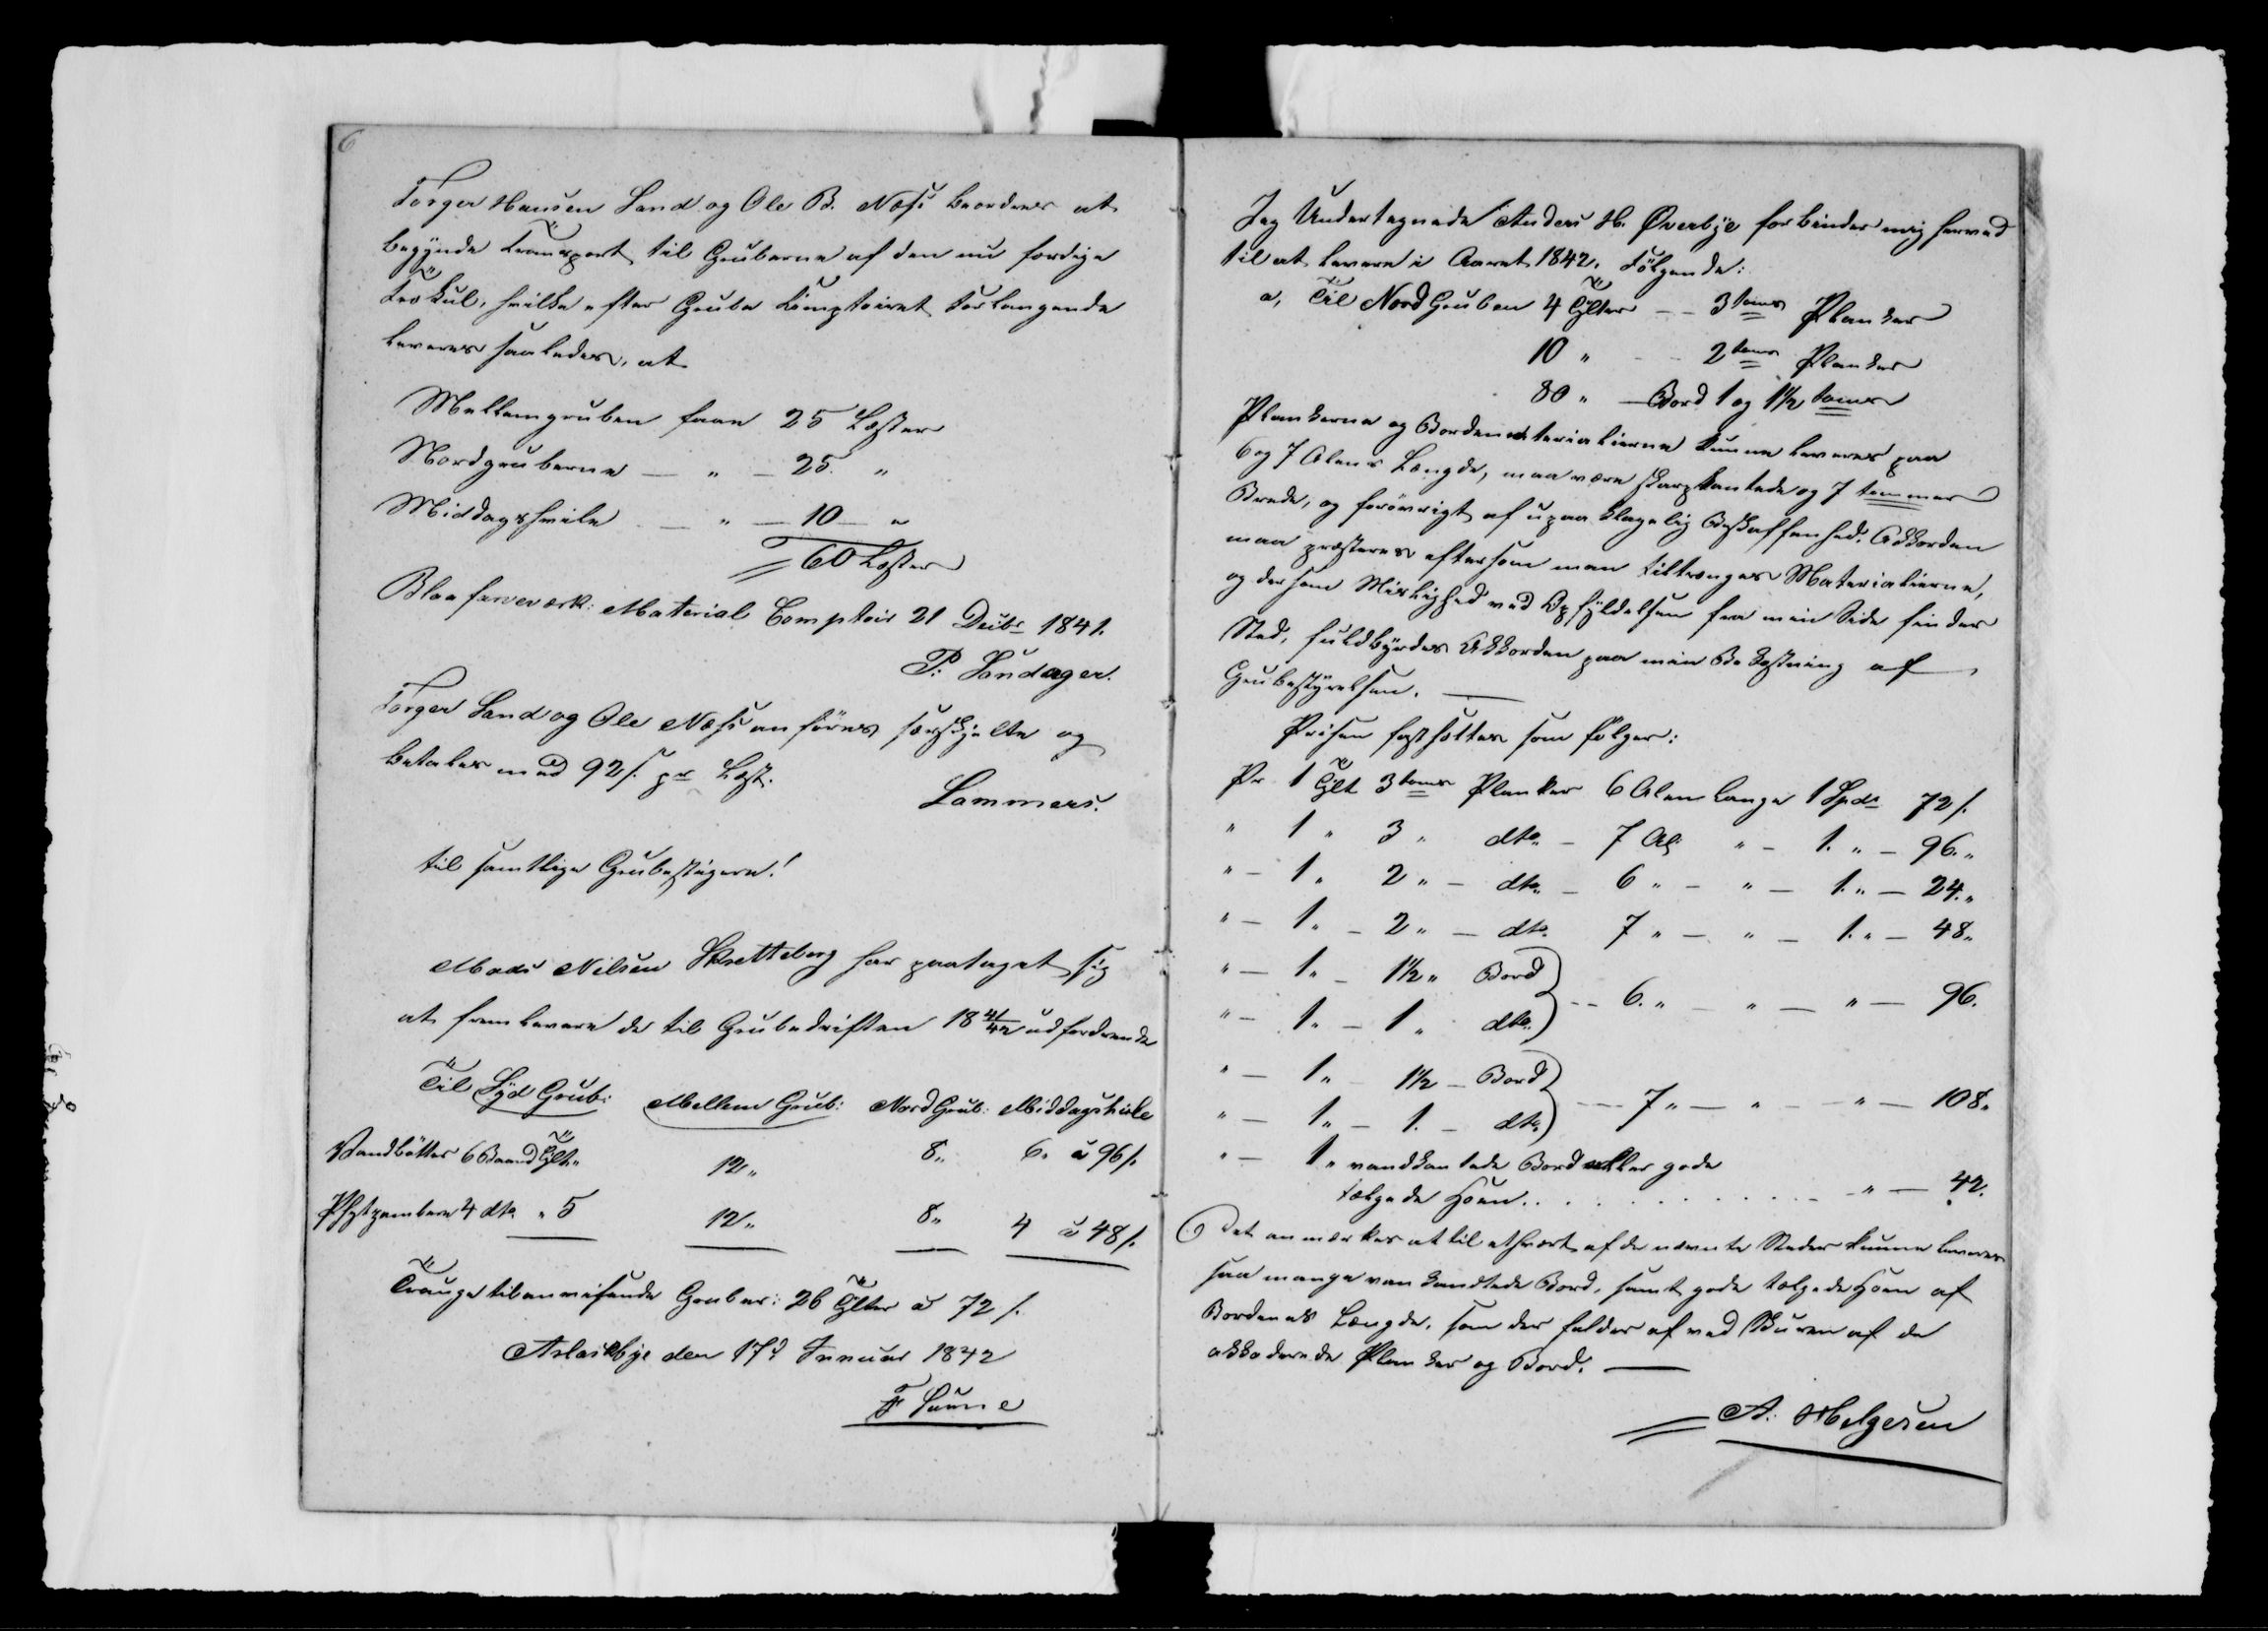 6
Torger Hansen Sand og Ole B. Næss beordres at
begynde Transport til Gruberne af den nu færdige
Trækul, hvilke efter Grube Comptoiret Forlangende
leveres saaledes, at
Mellemgruben faar 25 Læster
Nordgruberne — " — 25 "
Middagshvile — " — 10 — "
60 Læster
Blaafarveværk: Material Comptoir 21 Decbr 1841.
P. Sandager.
Torger Sand og Ole Næss anføres særskjelte og
betales med 92 s. pr Læst.
Lammers.
til samtlige Grubestigere!
Mads Nilsen Skretteberg har paataget sig
at fremlevere de til Grubedriften 18 41/42 udfordrende
Til Syd Grub: Mellem Grub: Nord Grub: Middagshvile
Vandbøtter 6 Baand Tylt " 12 " 8 " 6 " à 96 s.
4 dto " 5 12 " 8 " 4 à 48 s.
Trauge til anvisende Gruber: 26 Tylter à 72 s.
Aslaikbye den 17d Januar 1842
F Suune
Jeg Undertegnede Anders H. Øverbye forbinder mig herved
til at levere i Aaret 1842. Følgende:
a, Til Nord Gruben 4 Tylter — 3 toms Planker
10 " — 2 toms Planker
80 " — Bord 1 og 1½ toms
Plankerne og Bordmaterialierne kunne leveres paa
6 og 7 Alens Længde, maa være skarpkantede og 7 tommer
Brede, og forøvrigt af upaaklagelig Beskaffenhed. Akkorden
maa præsteres eftersom man tiltrænges Materialierne,
og dersom Mislighed ved Opfyldelsen fra min Side finder
Sted, fuldbyrdes Akkorden paa min Bekostning af
Grubestyrelsen. —
Prisen fastsættes som følger:
Pr 1 Tylt 3 toms Planker 6 Alen lange 1 Spdr 72 s.
" 1 " 3 " dto — 7 Al: " — 1. " — 96. "
" — 1 " 2 " — dto — 6 " — " — 1. " — 24. "
" — 1 " — 2 " — dto 7 " — " — 1. " — 48 "
" — 1 " — 1½ " Bord
" — 1 " — 1 " dto } — 6. " — " — " — 96.
" — 1 " — 1½ — Bord
" — 1 " — 1. — dto } — 7 " — " — " — 108 "
" — 1 " vandkantede Bord eller gode
tælgede Hoen . . . . . . . . . " — 42.
Det anmærkes at til ethvert af de nævnte Steder kunne leveres
saa mange vankandtede Bord, samt gode tælgede Hoen af
Bordenes Længde, som der falder af ved Skuren af de
akkoderede Planker og Bord. —
A. Helgesen